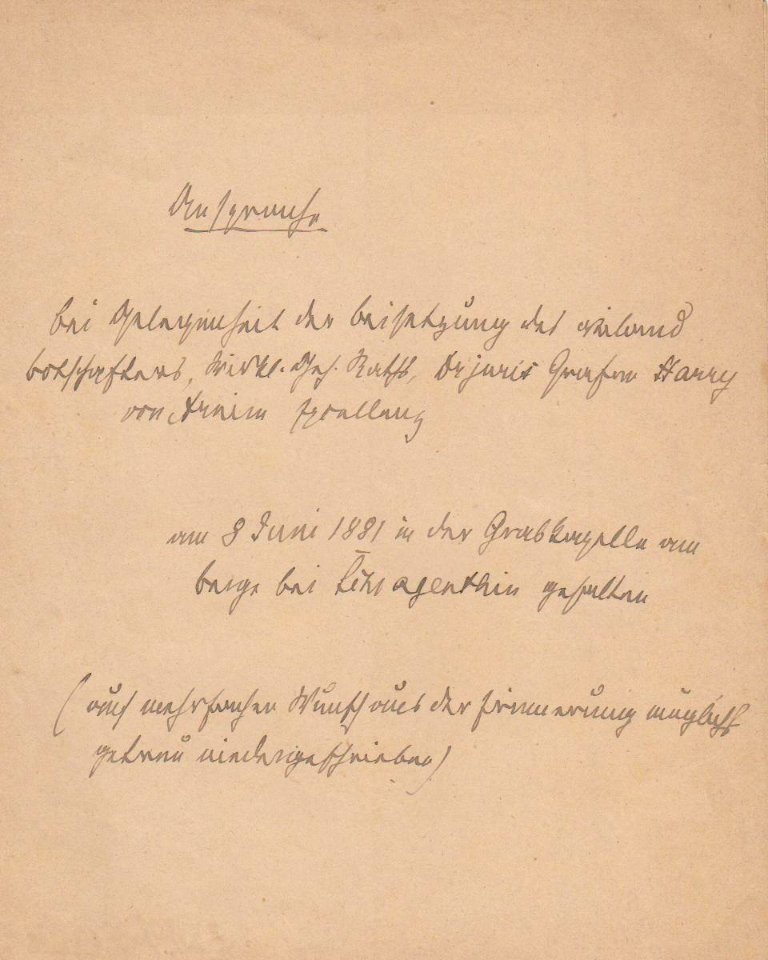 Ansprache
bei Gelegenheit der Beisetzung des weiland
Botschafters, Wirkl. Geh. Raths, Dr juris Grafen Harry
von Arnim Excellenz
am 8 Juni 1881 in der Grabkapelle am
Berge bei Schlagenthin gehalten
(auf mehrfachen Wunsch aus der Erinnerung möglichst
getreu niedergeschrieben)